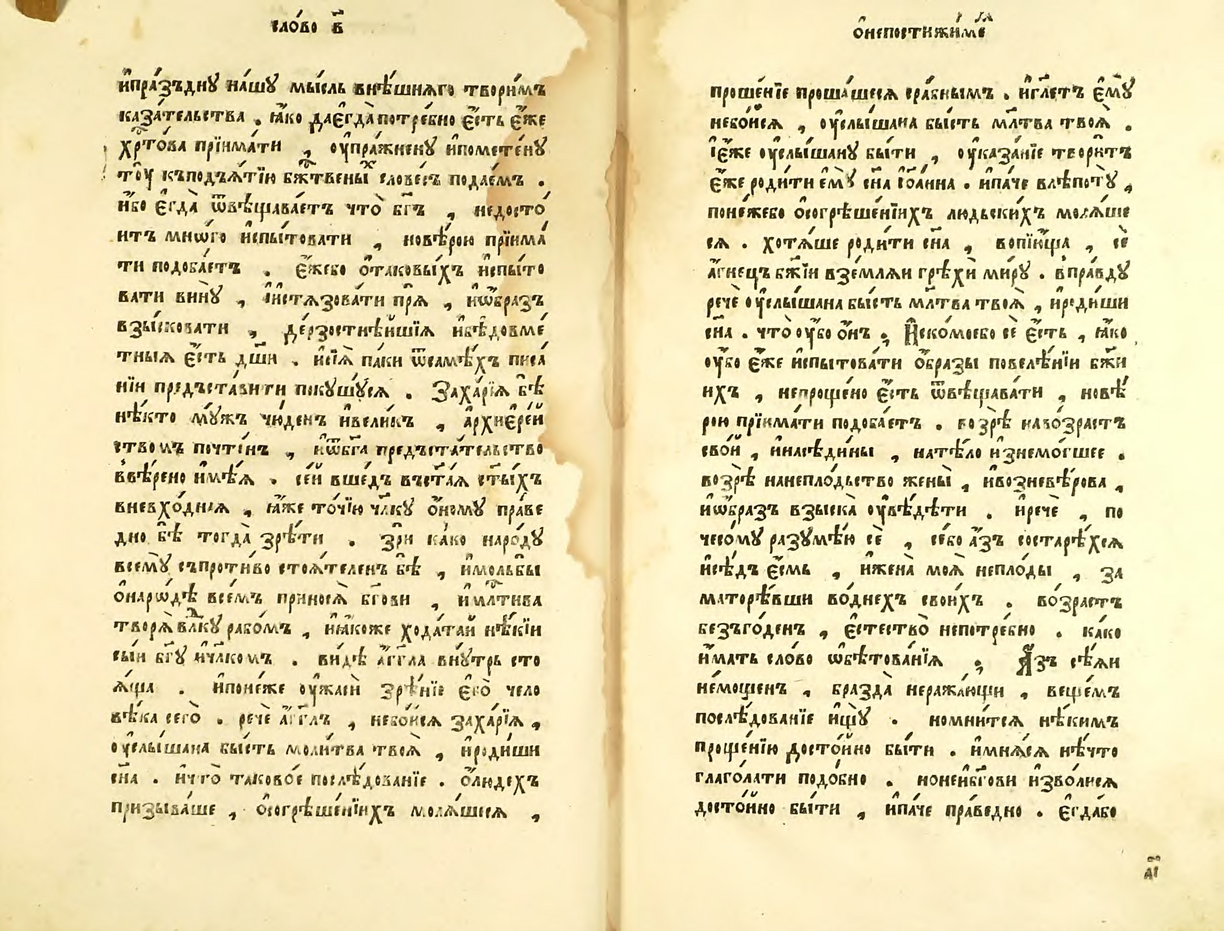 сло́во в҃
и҆пра́зъднꙋ на́шꙋ мы́сль внѣ́шнѧго твори́мъ
каза́тельства . ꙗ҆́ко даєгда̀ потре́бно є҆́сть є҆́же
хрⷭ҇то́ва прїима́ти , ᲂу҆пражне́нꙋ и҆помете́нꙋ
тоу къподъѧ́тїю бжⷭ҇твены́хъ слове́съ подае́мъ .
и҆́бо є҆гда̀ ѿвѣщава́етъ что̀ бг҃ъ , недосто́
итъ мно́гѡ и҆спы́товати , новѣ́рою прїима́
ти подоба́етъ . є҆́жебо ѻ҆таковы́хъ и҆спы́то
вати винꙋ̀ , и҆и҆стѧзова́ти прѧ̀ , и҆ѡ҆́бразъ
взы́сковати , де́рзостнѣйшїѧ и҆бѣдовме́
тныѧ є҆́сть дш҃и . и҆сїѧ̀ па́ки ѿсамѣ́хъ писа́
нїи предъста́вити покꙋшꙋ́сѧ . Заха́рїѧ бѣ̀
нѣ́кто мꙋ́жъ чю́денъ и҆вели́къ , а҆рхиере́й
ствомъ почте́нъ , и҆ѿбг҃а предъста́тельство
ввѣ́рено и҆мѣ́ѧ . се́й вше́дъ въст҃а́ѧ ст҃ы́хъ
вневхо́днаѧ , ꙗ҆́же то́чїю чл҃кꙋ ѻ҆номꙋ̀ пра́ве
дно бѣ̀ тогда̀ зрѣ́ти . зрѝ ка́ко наро́дꙋ
всемꙋ̀ съпроти́во стоѧ́теленъ бѣ̀ , и҆мольбы̀
ѻ҆наро́дѣ все́мъ приносѧ̀ бг҃ови , и҆мл҃тива
творѧ̀ влⷣкꙋ рабо́мъ , и҆ꙗ҆́коже хода́тай нѣ́кїи
сы́и бг҃ꙋ и҆чл҃комъ . ви́дѣ а҆́гг҃ла внꙋ́трь сто
ѧ́ща . и҆поне́же ᲂу҆жасѝ зрѣ́нїе є҆го̀ чело
вѣ́ка сего̀ . речѐ а҆́гг҃лъ , небо́йсѧ заха́рїѧ ,
ᲂу҆слы́шана бы́сть моли́тва твоѧ̀ , и҆роди́ши
сн҃а . и҆что̀ таково́е послѣ́дованїе . ѻ҆лю́дехъ
призыва́ше , ѻ҆согрѣше́нїихъ молѧ́шесѧ ,
ѻ҆непостижи́мѣ
проше́нїе прошашесѧ сра́бнымъ . и҆гл҃етъ є҆мꙋ̀
небо́йсѧ , ᲂу҆слы́шана бы́сть мл҃тва твоѧ̀ .
І҆є҆́же ᲂу҆слы́шанꙋ бы́ти , ᲂу҆каза́нїе твори́тъ
є҆́же роди́ти є҆мꙋ̀ сн҃а і҆ѻа́нна . и҆па́че влѣ́потꙋ ,
поне́жебо ѻ҆согрѣше́нїихъ людьски́хъ молѧ́ше
сѧ . хотѧ́ше роди́ти сн҃а , вопїю́ща , сѐ
а҆́гнецъ бж҃їи взе́млѧи грѣхѝ ми́рꙋ . впра́вдꙋ
речѐ ᲂу҆слы́шана бы́сть мл҃тва твоѧ̀ , и҆роди́ши
сн҃а . что̀ ᲂу҆́бо ѻ҆́нъ . И҆ско́моебо сѐ є҆́сть , ꙗ҆́ко
ᲂу҆́бо є҆́же и҆спытова́ти ѻ҆́бразы повелѣ́нїи бж҃и
ихъ , непроще́но є҆́сть ѿвѣщава́ти , новѣ́
рою прїима́ти подоба́етъ . возрѣ̀ наво́зрастъ
сво́й , и҆насѣди́ны , натѣ́ло и҆знемо́гшее .
возрѣ̀ нанепло́дьство жены̀ , и҆возневѣ́рова ,
и҆ѡ҆́бразъ взыска̀ ᲂу҆вѣ́дѣти . и҆речѐ , по
чесомꙋ̀ разꙋмѣ́ю сѐ , се́бо а҆́зъ состарѣ́хсѧ
и҆сѣ́дъ є҆́смь , и҆жена̀ моѧ̀ непло́ды , за
маторѣ́вши во́днехъ свои́хъ . во́зрастъ
безъго́денъ , є҆стество̀ непотре́бно . ка́ко
и҆́мать сло́во ѡ҆бѣтова́нїѧ . А҆́зъ сѣ́ѧи
не́мощенъ , бразда̀ неражда́ющи , веще́мъ
послѣ́дованїе и҆щꙋ̀ . номни́тсѧ нѣ́кимъ
проше́нїю досто́йно бы́ти . и҆мни́сѧ нѣ́что
глаго́лати подо́бно . ноне́ибг҃ови и҆зво́лисѧ
досто́йно бы́ти , и҆па́че пра́ведно . є҆гда́бо
д҃і